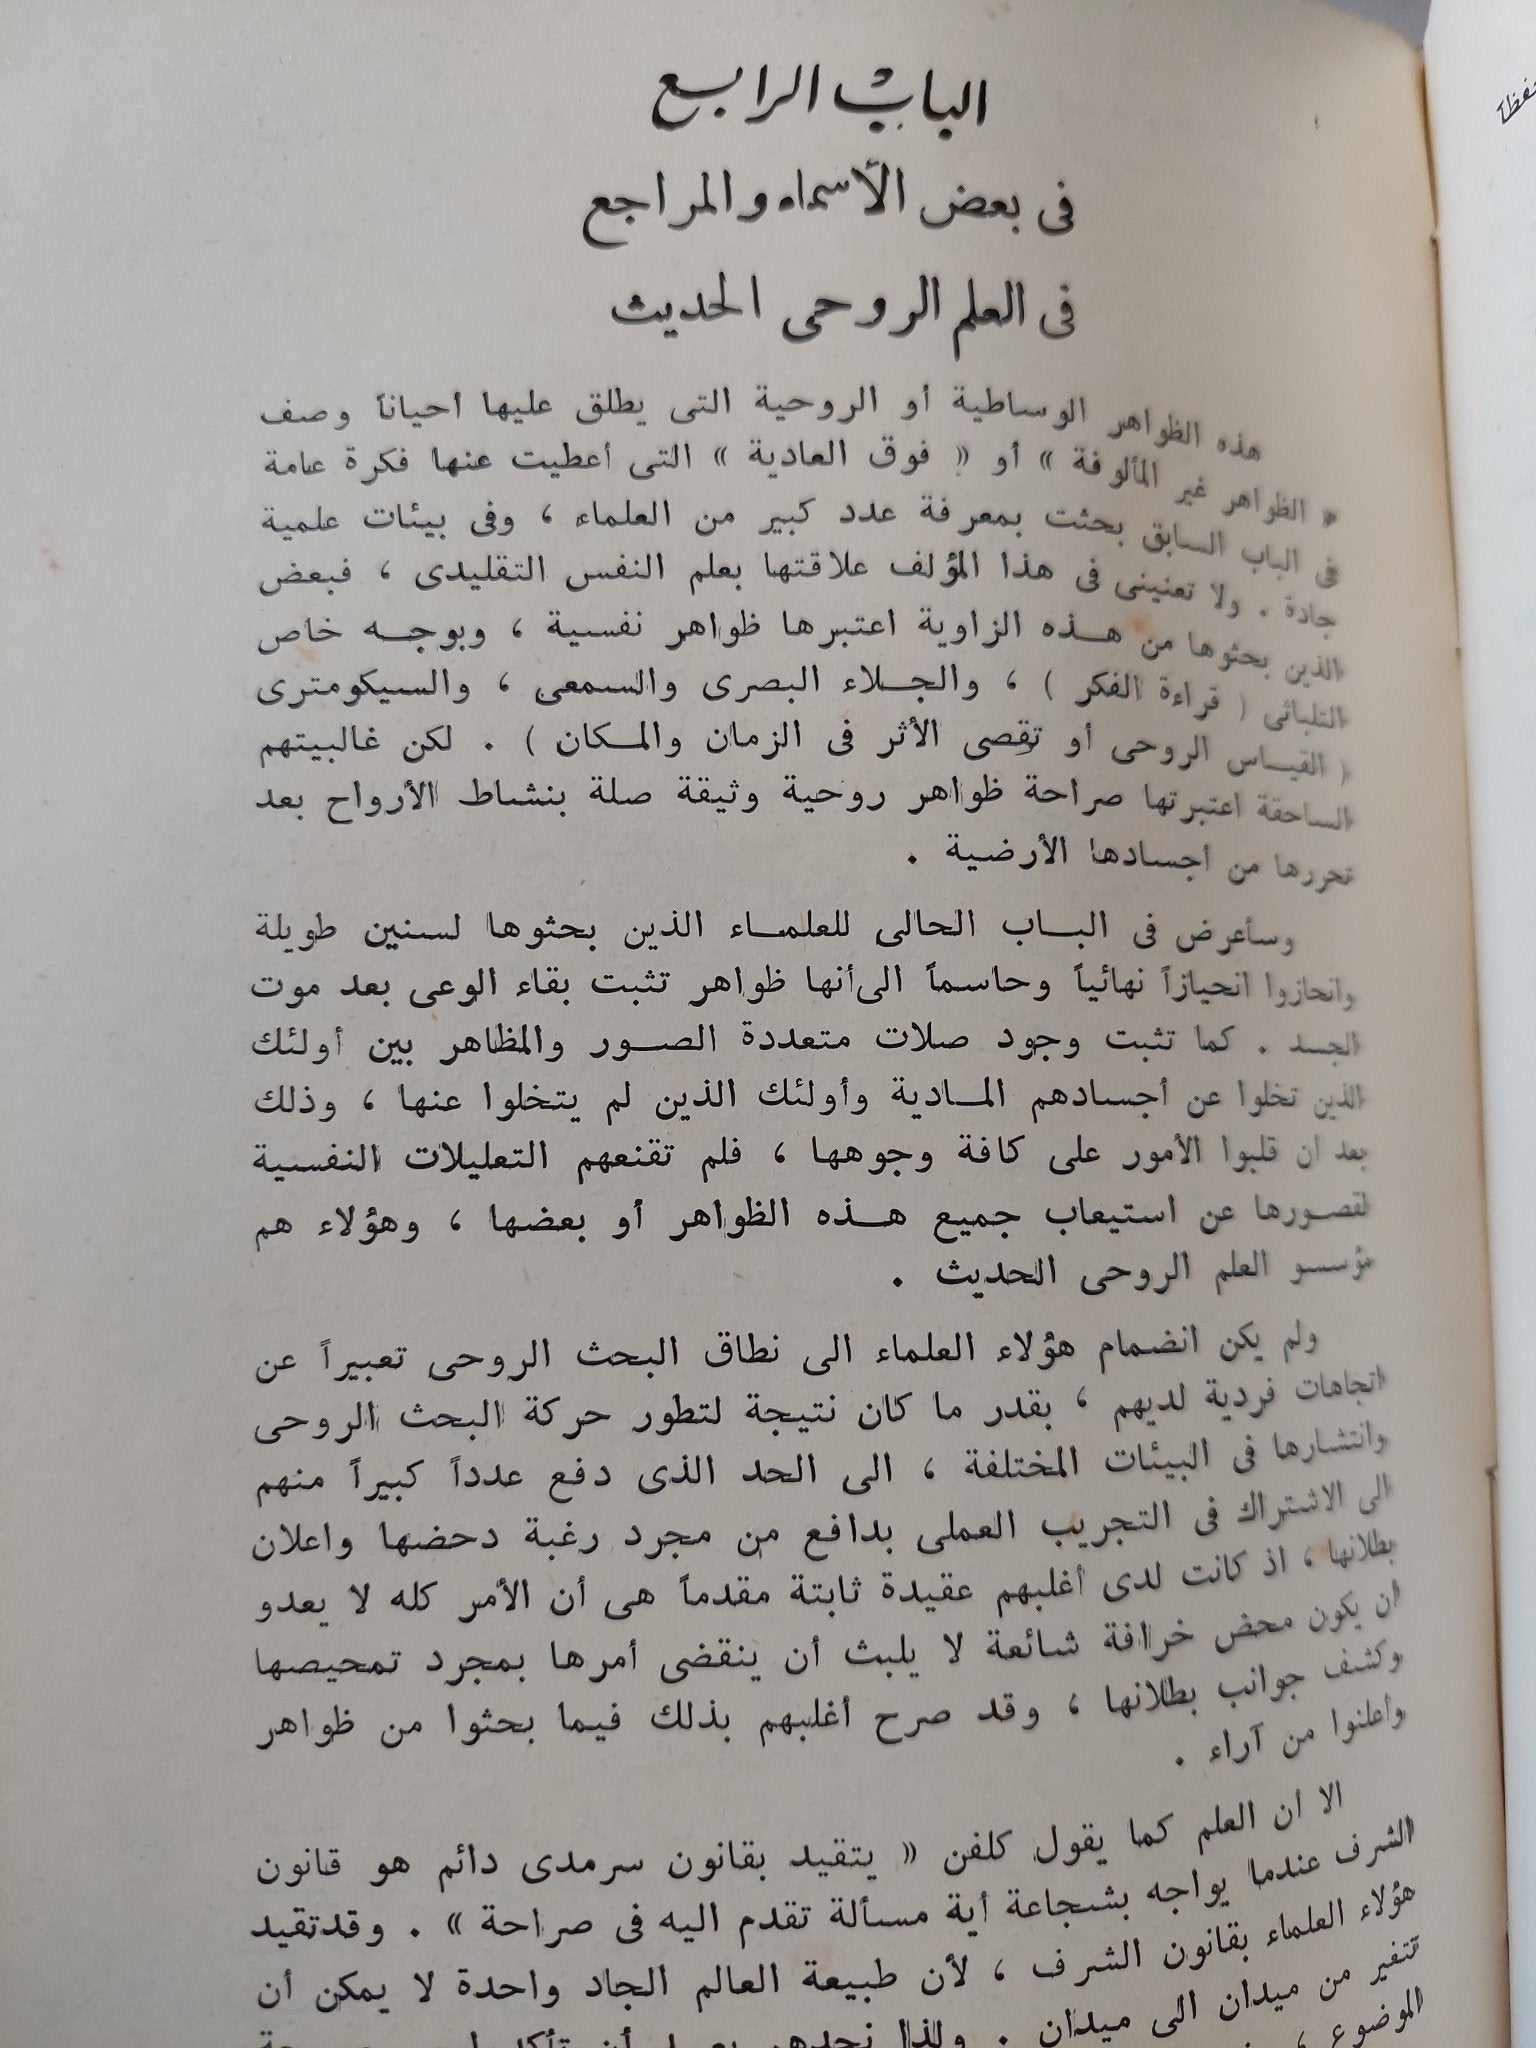 الباب الرابع
فى بعض الأسماء والمراجع
فى العلم الروحى الحديث
هذه الظواهر الوساطية أو الروحية التى يطلق عليها أحياناً وصف
« الظواهر غير المألوفة » أو « فوق العادية » التى أعطيت عنها فكرة عامة
فى الباب السابق بحثت بمعرفة عدد كبير من العلماء ، وفى بيئات علمية
جادة . ولا تعنينى فى هذا المؤلف علاقتها بعلم النفس التقليدى ، فبعض
الذين بحثوها من هـذه الزاوية اعتبرها ظواهر نفسية ، وبوجـه خاص
التلباثى ( قراءة الفكر ) ، والجـلاء البصرى والسمعى ، والسيكومترى
( القيـاس الروحى أو تقصى الأثر فى الزمان والمـكان ) . لكن غالبيتهم
الساحقة اعتبرتها صراحة ظواهر روحية وثيقة صلة بنشاط الأرواح بعد
تحررها من أجسادها الأرضية .
وسأعرض فى البـاب الحالى للعلمـاء الذين بحثوها لسنين طويلة
وانحازوا انحيازاً نهائياً وحاسماً الى أنها ظواهر تثبت بقاء الوعى بعد موت
الجسد . كما تثبت وجود صلات متعددة الصـور والمظاهر بين أولئك
الذين تخلوا عن أجسادهم المـادية وأولئك الذين لم يتخلوا عنها ، وذلك
بعد أن قلبوا الأمور على كافة وجوهها ، فلم تقنعهم التعليلات النفسية
لقصـورها عن استيعاب جميع هـذه الظواهر أو بعضها ، وهؤلاء هم
مؤسسو العلم الروحى الحديث .
ولم يكن انضمام هؤلاء العلماء الى نطاق البحث الروحى تعبيراً عن
اتجاهات فردية لديهم ، بقدر ما كان نتيجة لتطور حركة البحث الروحى
وانتشارها فى البيئات المختلفة ، الى الحد الذى دفع عدداً كبيراً منهم
الى الاشتراك فى التجريب العملى بدافع من مجرد رغبة دحضها واعلان
بطلانها ، اذ كانت لدى أغلبهم عقيدة ثابتة مقدماً هى أن الأمر كله لا يعدو
أن يكون محض خرافة شائعة لا يلبث أن ينقضى أمرها بمجرد تمحيصها
وكشف جوانب بطلانها ، وقد صرح أغلبهم بذلك فيما بحثوا من ظواهر
وأعلنوا من آراء .
الا أن العلم كما يقول كلفن « يتقيد بقانون سرمدى دائم هو قانون
الشرف عندما يواجه بشجاعة أية مسألة تقدم اليه فى صراحة » . وقدتقيد
هؤلاء العلماء بقانون الشرف ، لأن طبيعة العالم الجاد واحدة لا يمكن أن
تتغير من ميدان الى ميدان . ولذا نجدهم
الموضوع ،